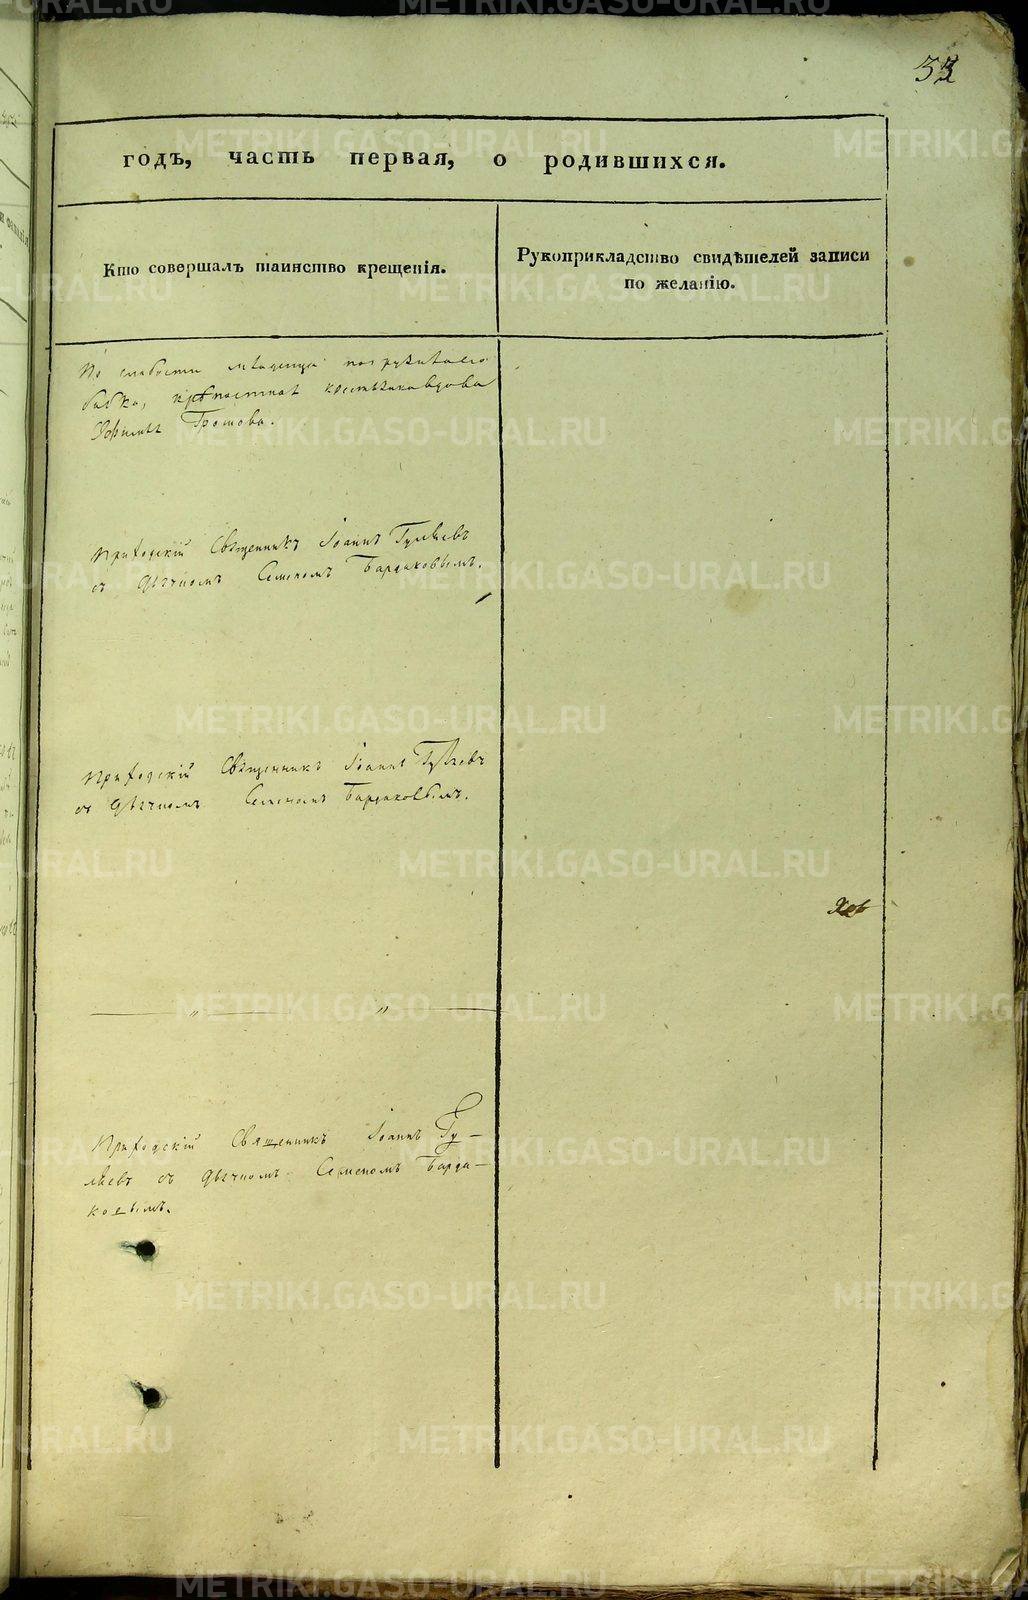 33
годъ, часть первая, о родившихся.
Кто совершалъ таинство крещенія.
Рукоприкладство свидѣтелей записи
по желанію.
По слабости младенца погружала
бабка, крѣпостная вдова
Громова.
Приходскій Священникъ Іоаннъ Гуляевъ
съ Дьячкомъ Семеномъ Бардаковымъ.
Приходскій Священникъ Іоаннъ Гуляевъ
съ Дьячкомъ Семеномъ Бардаковымъ.
— „ — „ —
Приходскій Священникъ Іоаннъ Гу-
ляевъ съ Дьячкомъ Семеномъ Барда-
ковымъ.
METRIKI.GASO-URAL.RU